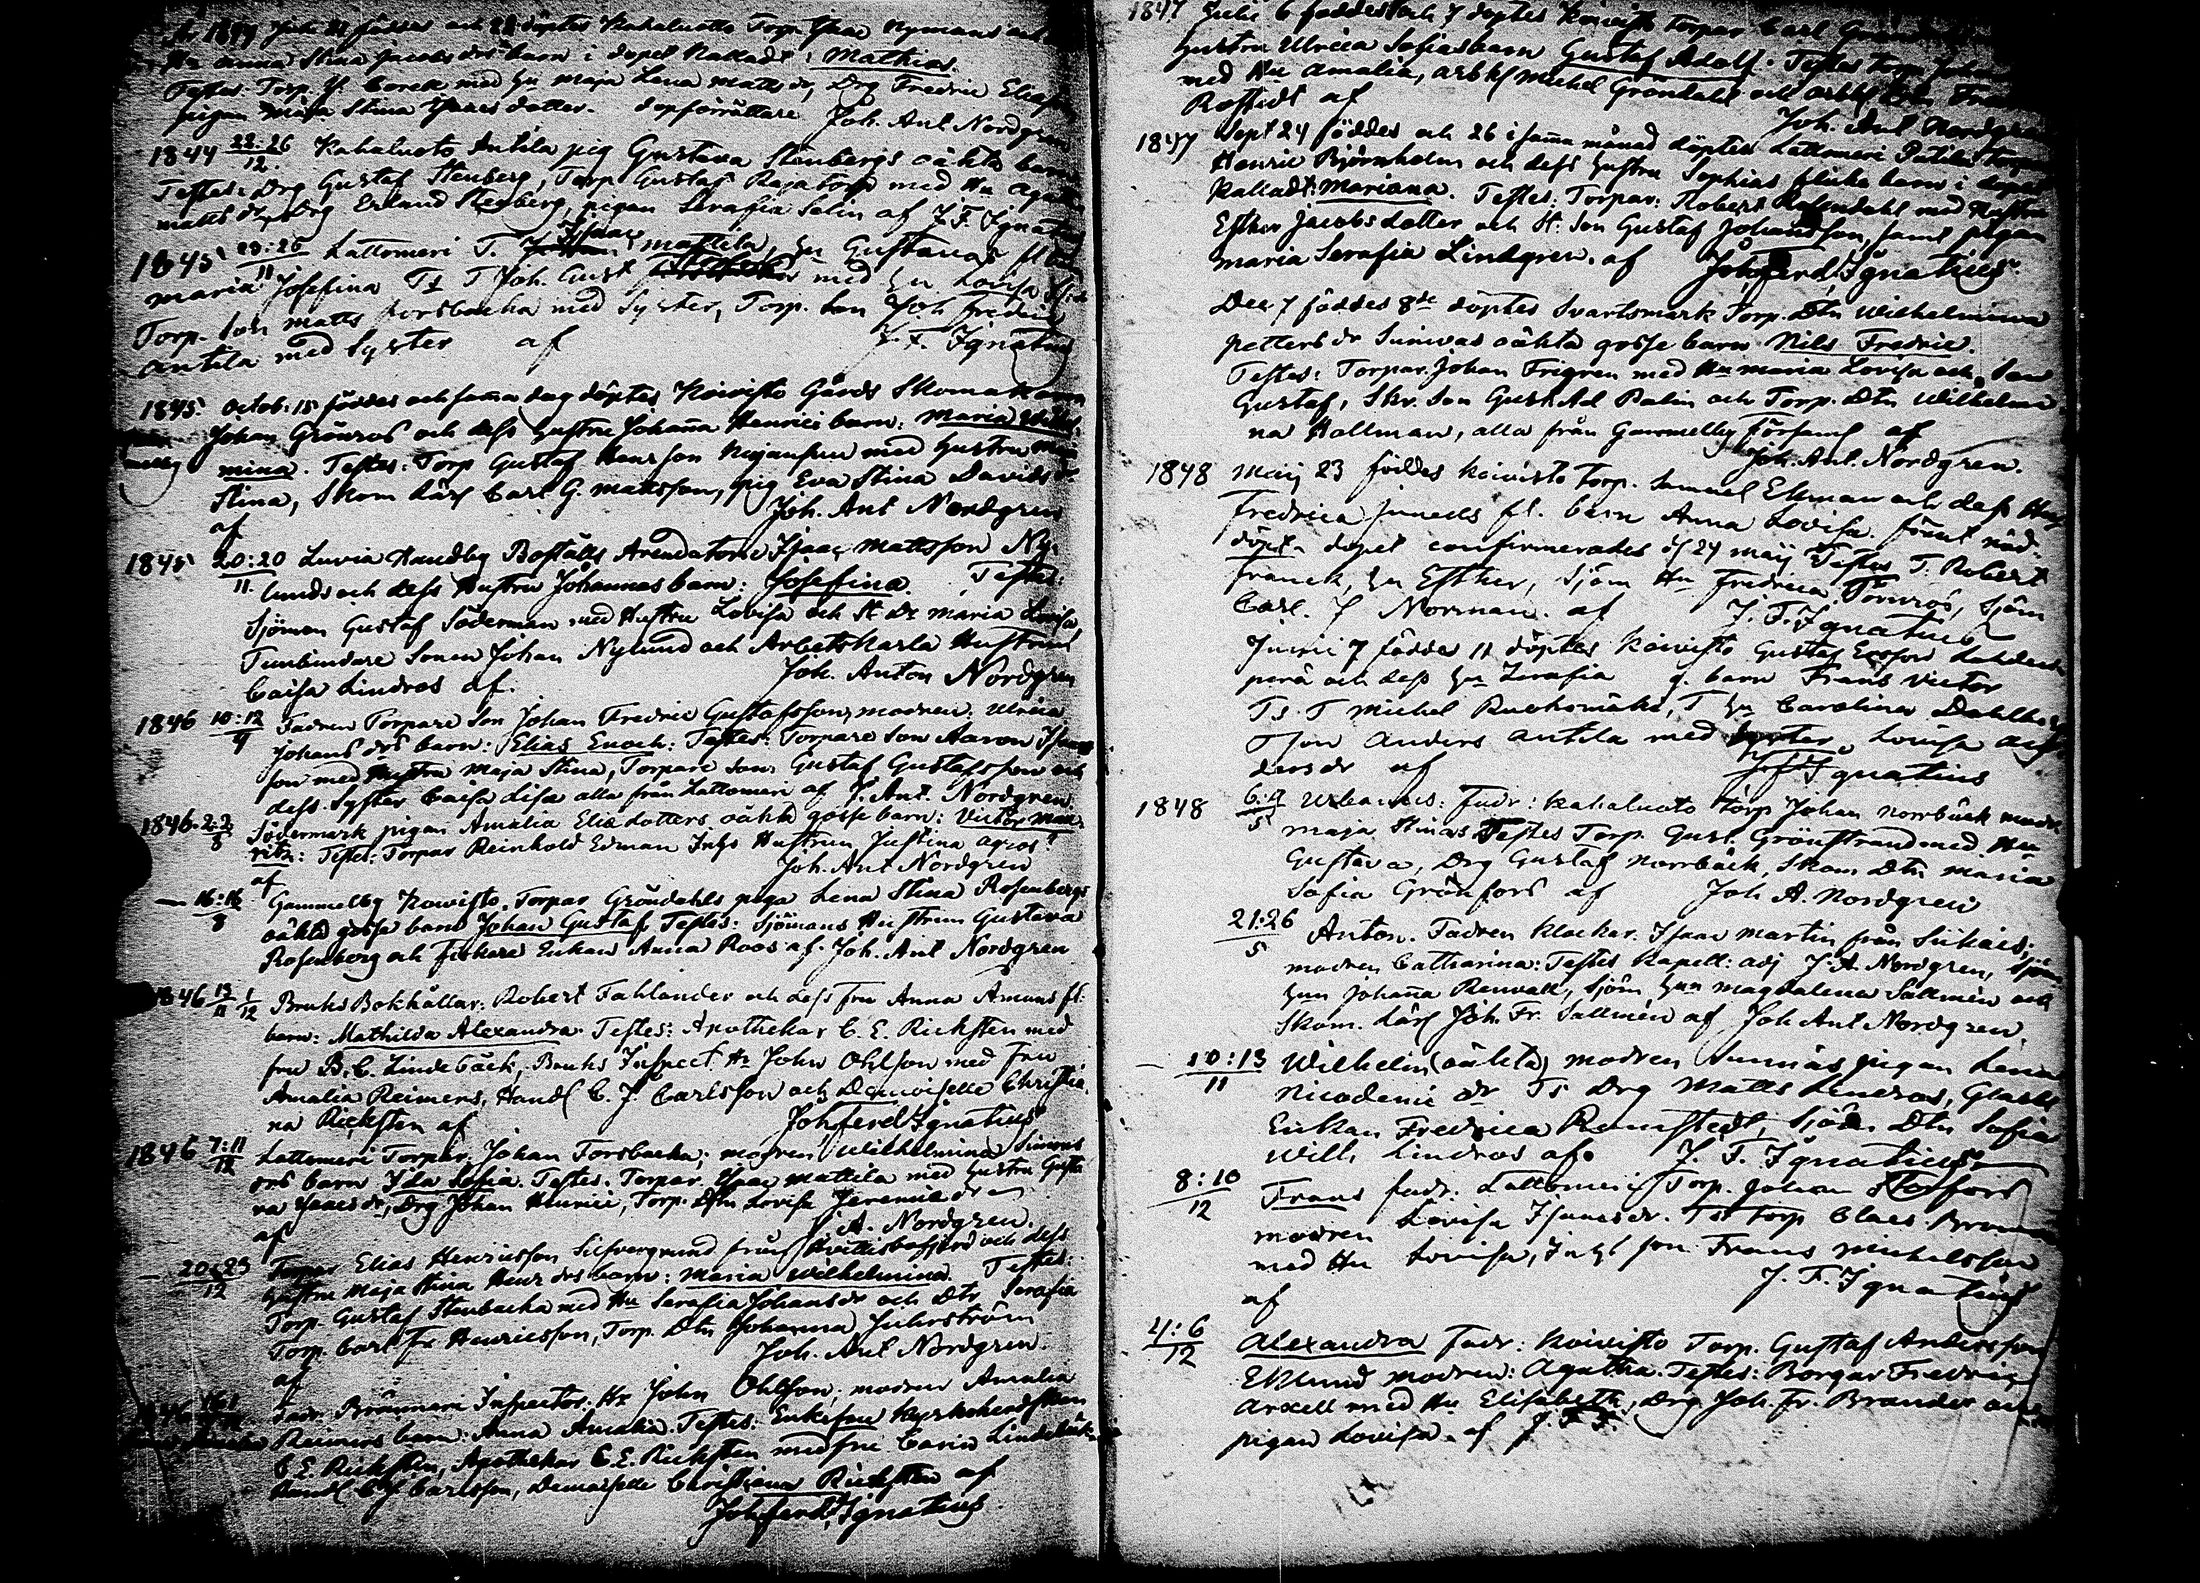 1844 Juli 21 föddes och 22 döptes Kahaluoto Torp. Isaac Nymans och
Hu Anna Stina Jacobs drs barn i dopet kalladt: Mathias.
Testes: Torp. G. Borell med Hu Maja Lena Matts dr, Drg Fredric Eliasson
pigan Maja Stina Isaacs dotter. dopförrättare Joh. Ant Nordgren
1844 22:26/12 Kahaluoto Antila pig Gustava Stenbergs oäkta barn
Testes: Drg Gustaf Stenberg, Torp Gustaf Rajatorp med Hu Agata
Matts dr, Drg Erland Renberg, pigan Serafia Selin af J. F. Ignatius
1845 23:26/11 Lattomeri T. Isaac Mattila, Hu Gustavas fl barn
Maria Josefina Ts T Joh. Gust med Hu Lovisa
Torp. Son Matts Forsbacka med Syster, Torp. Son Joh Fredric
Antila med Syster af J. F. Ignatius
1845 Octob. 15 föddes och samma dag döptes Koivisto Gårds Skomakaren
Johan Grönroos och dess Hustru Johanna Henrics barn: Maria Wilhel-
mina. Testes: Torp Gustaf Henrsson med Hustru Maja
Stina, Skom Lärl Carl G. Mattsson, pig Eva Stina Davids dr
af Joh. Ant Nordgren
1845 20:20/11 Luvia Hambby Boställs Arendatorn Isaac Mattsson Ny-
lunds och dess Hustru Johannas barn: Josefina. Testes:
Sjöman Gustaf Söderman med Hustru Lovisa och Dr Maria Lovisa
Tunbindare Sonen Johan Nylund och Arbetskarls Hustrun
Caisa Lindros af. Joh. Anton Nordgren
1846 10:12/4 Fadren Torpare Son Johan Fredric Gustafsson, modren: Ulrica
Johans drs barn: Elias Enoch: Testes: Torpare Son Aaron Isaacs
son med Hustru Maja Stina, Torpare Son Gustaf Gustafsson och
dess Syster Caisa Lisa alla från Lattomeri af J. Ant. Nordgren
1846 2:2/8 Södermark pigan Amalia Elias dotters oäkta gosse barn: Victor Mau-
ritz: Testes: Torpar Reinhold Edman Inhs Hustrun Justina Agros
af Joh. Ant Nordgren
— 16:16/8 Gammelby Koivisto. Torpar Gröndahls piga Lena Stina Rosenbergs
oäkta gosse barn Johan Gustaf. Testes: Sjömans Hustrun Gustava
Rosenberg och Fiskare Enkan Anna Roos af Joh. Ant Nordgren
1846 13/11 1/12 Bruks Bokhållar. Robert Fahlander och dess fru Anna fl.
barn: Mathilda Alexandra. Testes: Apothekar C. E. Ricksten med
fru B. C. Lindebäck, Bruks Inspect. Hr John Ohlsson med fru
Amalia Reimers, Handl C. J. Carlsson och Demoiselle Christia-
na Ricksten af Joh ferd Ignatius
1846 7:11/12 Lattomeri Torpar. Johan Forsbacka; modren Wilhelmina Simons
drs barn Ida Sofia. Testes. Torpar. Isac Mattila med Hustru Gusta-
va Isacs dr, Drg Johan Henrici, Torp. Dtn Lovisa Jeremiæ dr
af J. A. Nordgren.
— 20:23/12 Torpar Elias Henricsson Silfvergrund från Hvittisbofjärd och dess
Hustru Maja Stina Henr drs barn: Maria Wilhelmina. Testes:
Torp. Gustaf Stenbacka med Hu Serafia Johans dr och Dtr Serafia
Torp. Carl Fr Henricsson, Torp. Dtn Johanna Juhrström
af Joh. Ant Nordgren.
1846 Fadr. Brännari Inspector. Hr John Ohlsson, modren Amalia
Reimers barn: Anna Amalia. Testes. Enkefru Kyrkoherdskan
C. E. Ricksten, Apothekar C. E. Ricksten med fru Carin Lindebäck
Handl C J Carlsson, Demoiselle Christiana Ricksten af
Joh ferd Ignatius
1847 Julii 6 föddes och 7 döptes Koivisto Torpar Carl
Hustru Ulrica Sofias barn Gustaf Adolf. Testes Torp. Johan
med Hu Amalia, arbk Michel Gröndahl och
Rostedt af Joh. Ant Nordgren
1847 Sept 24 föddes och 26 i samma månad döptes Lattomeri Torpar
Henric Björnholm och dess Hustru Sophias flicke barn i dopet
kalladt: Mariana. Testes: Torpar: Robert Rosendahl med Hustru
Esther Jacobs dotter och Son Gustaf Johansson, samt pigan
Maria Serafia Lindgren. af Joh ferd Ignatius
Dec 7 föddes 8de döptes Svartsmark Torp. Dtn Wilhelmina
Petters dr Sunivas oäkta gosse barn Nils Fredric.
Testes: Torpar. Johan Frigren med Hu Maria Lovisa och Son
Gustaf, Skr. Son Gust Ad Palin och Torp. Dtn Wilhelmi-
na Hallman, alla från Gammelby af
Joh. Ant. Nordgren.
1848 Maij 23 föddes Koivisto Torp. Samuel Ekman och dess Hustr
Fredrica fl. barn Anna Lovisa. förut nöd-
döpt. dopet confirmerades d/ 24 Maij Testes T. Robert
Franck, Hu Esther, Sjöm Hu Fredrica Törnroos, Sjöm
Carl. J Norrman. af J. F. Ignatius
Junii 7 föddes 11 döptes Koivisto Gustaf Ersson
perä och dess Hu Serafia g. barn Frans Victor
Ts. T Michel Ruohomäki, T Hu Carolina Dahlberg
T son Anders Antila med Syster Lovisa An-
dersdr af J F Ignatius
1848 6:9/5 Urbanus: Fadr: Kahaluoto Torp Johan Norrbäck modr.
Maja Stinas Testes Torp. Gust. Grönstrand med Hu
Gustava, Drg Gustaf Norrbäck, Skom Dtn Maria
Sofia Grönfors af Joh A. Nordgren
21:26/5 Anton. Fadren Klockar. Isaac Martin från Siikais;
modren Catharina: Testes Kapell: adj J. A. Nordgren, Sjöm
Hun Johanna Renvall, Sjöm Hun Magdalena Sallmén och
Skom. Lärl Joh. Fr. Sallmén af Joh Ant Nordgren
— 10:13/11 Wilhelm (oäkta) modren Sunnäs pigan Lena
Nicodemi dr Ts Drg Matts Lindros, Glasb
Enkan Fredrica Remstedt, Sjöm Dtn Sofia
Wilh. Lindros af. J. F. Ignatius
8:10/12 Frans fadr. Lattomeri Torp. Johan Storfors
modren Lovisa Isaacs dr. Ts Torp Claes
med Hu Lovisa, Inhs son Frans Michelsson
af J. F. Ignatius
4:6/12 Alexandra Fadr: Koivisto Torp. Gustaf Andersson
Eklund modren: Agatha. Testes: Borgar Fredric
Arxell med Hu Elisabeth, Drg Joh. Fr. Brander och
pigan Lovisa. af J. F. I.